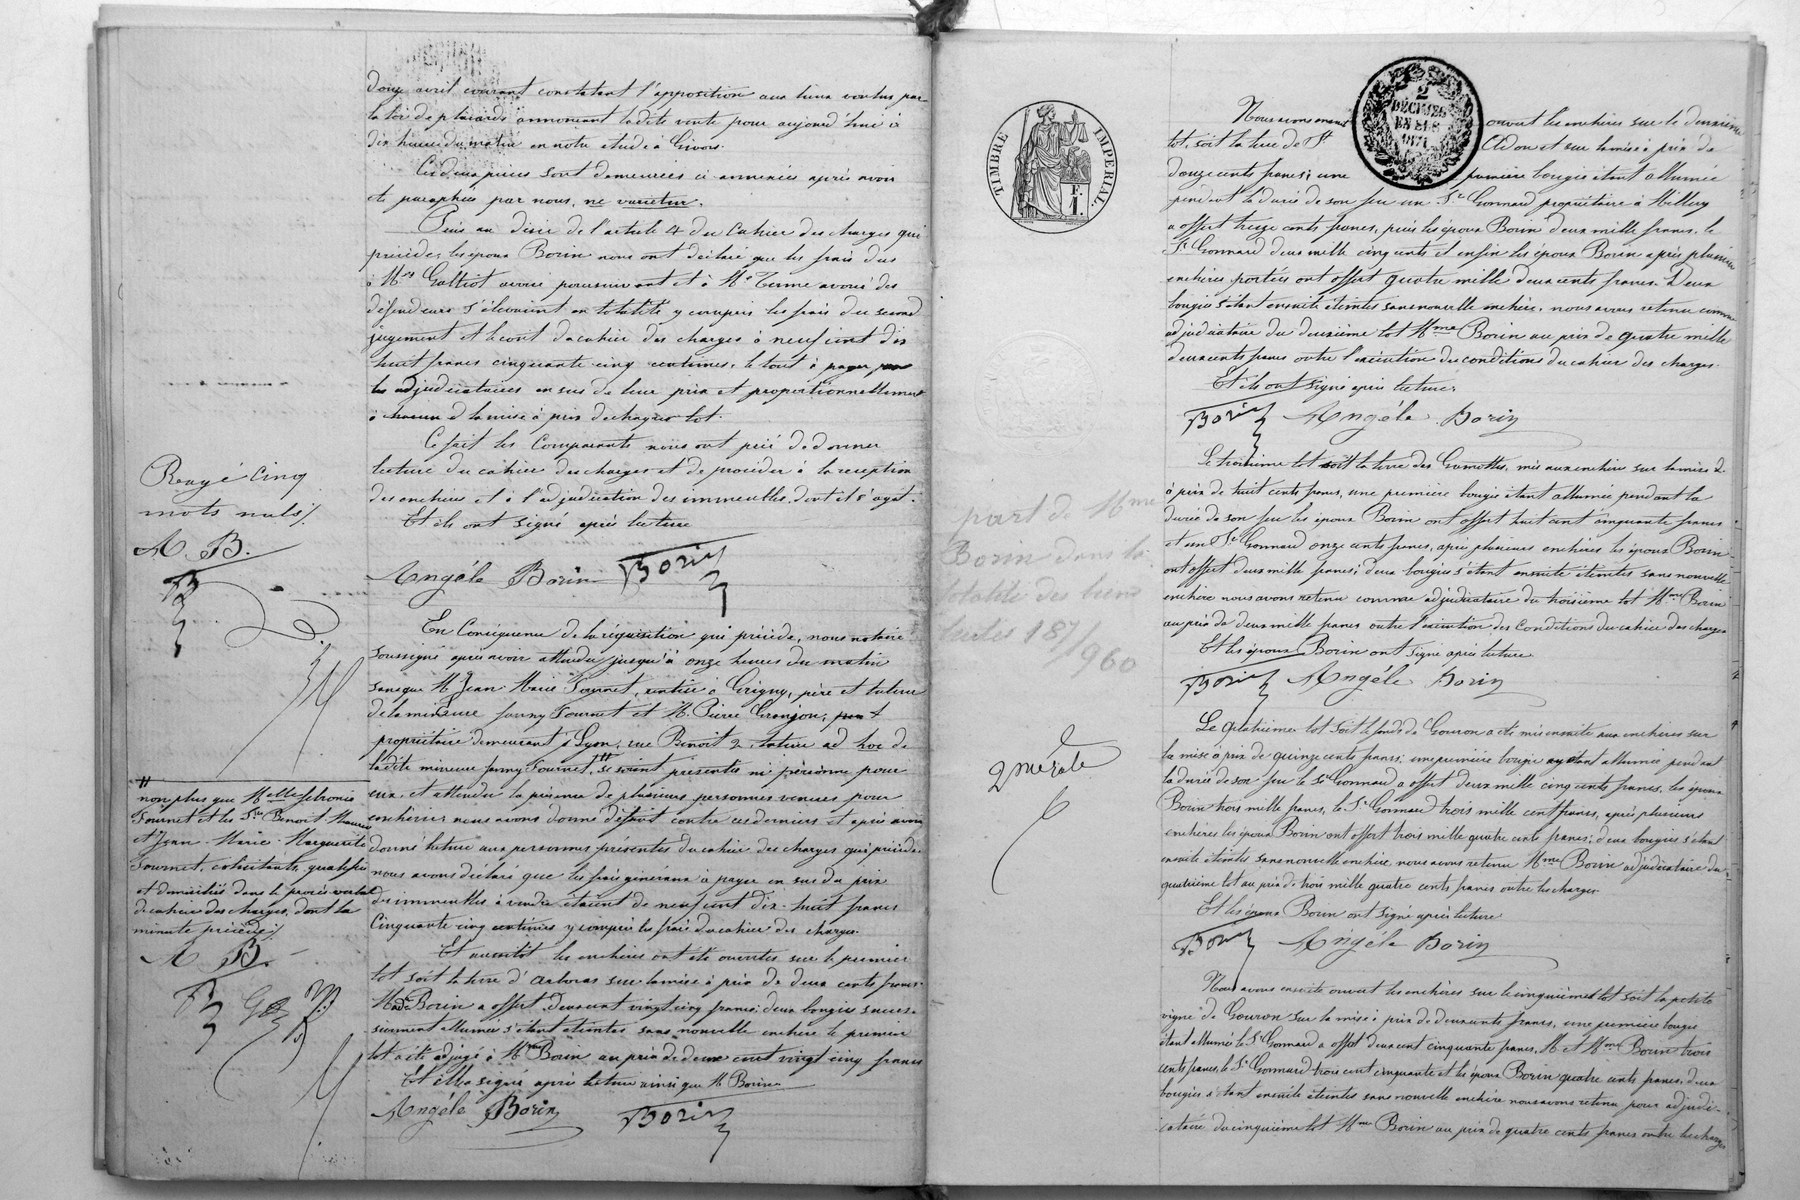 douze avril courant constatant l'apposition aux lieux voulus par
la loi de placards annonçant ladite vente pour aujourd'hui à
dix heures du matin en notre étude à Givors.
Ces deux pièces sont demeurées ci annexées après avoir
été paraphées par nous, ne varietur.
Puis au désir de l'article 4 du Cahier des charges qui
précède, les époux Borin nous ont déclaré que les frais dus
à Mes Galliot avoué poursuivant et à Me Terme avoué des
défendeurs s'élevaient en totalité y compris les frais du second
jugement et le coût du cahier des charges à neuf cent dix
huit francs cinquante cinq centimes, le tout à payer par
les adjudicataires en sus de leur prix et proportionnellement
à chacun d la mise à prix de chaque lot.
Ce fait les Comparants nous ont prié de donner
lecture du cahier des charges et de procéder à la réception
des enchères et à l'adjudication des immeubles dont il s'agit.
Et ils ont signé après lecture
Angéle Borin Borin
En Conséquence de la réquisition qui précède, nous notaire
soussigné après avoir attendu jusqu'à onze heures du matin
sans que M. Jean Marie Tournet, rentier à Grigny, père et tuteur
de la mineure Fanny Tournet et M. Pierre Granjon,
propriétaire demeurant à Lyon, rue Benoit 2, tuteur ad hoc de
ladite mineure Fanny Tournet, " se soient présentés ni personne pour
eux, et attendu la présence de plusieurs personnes venues pour
enchérir nous avons donné défaut contre ces derniers et après avoir
donné lecture aux personnes présentes du cahier des charges qui précède
nous avons déclaré que les frais généraux à payer en sus du prix
des immeubles à vendre étaient de neuf cent dix-huit francs
Cinquante cinq centimes y compris les frais du cahier des charges.
Et aussitôt les enchères ont été ouvertes sur le premier
lot soit la terre d'Arboras sur la mise à prix de deux cents francs.
Made Borin a offert deux cent vingt cinq francs; deux bougies succes-
sivement allumées s'étant éteintes sans nouvelle enchère le premier
lot a été adjugé à Mme Borin au prix de deux cent vingt cinq francs
Et elle a signé après lecture ainsi que M. Borin
Angéle Borin Borin
Rayé Cinq
mots nuls
A. B.
"
non plus que Melle
Tournet et les Srs Benoit Maurice
et Jean-Marie-Marguerite
Tournet, colicitants, qualifiés
et domiciliés dans le procès verbal
de cahier des charges, dont la
minute précède
A B.
TIMBRE IMPERIAL.
1 F.
2
DÉCIMES
EN SUS
1871
part de Mme
Borin dans la
totalité des biens
187/960
2me rôle
Nous avons ensuite ouvert les enchères sur le deuxième
lot, soit la terre de St Abdon et sur la mise à prix de
douze cents francs; une première bougie étant allumée
pendant la durée de son feu un Sr Gonnard propriétaire à Millery
a offert treize cents francs, puis les époux Borin deux mille francs, le
Sr Gonnard deux mille cinq cents et enfin les époux Borin après plusieurs
enchères portées ont offert quatre mille deux cents francs. Deux
bougies s'étant ensuite éteintes sans nouvelle enchère, nous avons retenu comme
adjudicataire du deuxième lot Mme Borin au prix de quatre mille
deux cents francs outre l'exécution des conditions du cahier des charges.
Et ils ont signé après lecture.
Borin Angéle Borin
Le troisième lot soit la terre des Gamottes, mis aux enchères sur la mise
à prix de huit cents francs, une première bougie étant allumée pendant la
durée de son feu les époux Borin ont offert huit cent cinquante francs
et un Sr Gonnard onze cents francs, après plusieurs enchères les époux Borin
ont offert deux mille francs; deux bougies s'étant ensuite éteintes sans nouvelle
enchère nous avons retenu comme adjudicataire du troisième lot Mme Borin
au prix de deux mille francs outre l'exécution des Conditions du cahier des charges
Et les époux Borin ont signé après lecture
Borin Angéle Borin
Le quatrième lot soit le fonds de Gouron a été mis ensuite aux enchères sur
la mise à prix de quinze cents francs; une première bougie ayant allumée pendant
la durée de son feu le Sr Gonnard a offert deux mille cinq cents francs, les époux
Borin trois mille francs, le Sr Gonnard trois mille cent francs, après plusieurs
enchères les époux Borin ont offert trois mille quatre cents francs; deux bougies s'étant
ensuite éteintes sans nouvelle enchère, nous avons retenu Mme Borin adjudicataire du
quatrième lot au prix de trois mille quatre cents francs outre les charges
Et les époux Borin ont signé après lecture
Borin Angéle Borin
Nous avons ensuite ouvert les enchères sur le cinquième lot soit la petite
vigne de Gouron sur la mise à prix de deux cents francs, une première bougie
étant allumée le Sr Gonnard a offert deux cent cinquante francs, M et Mme Borin trois
cents francs, le Sr Gonnard trois cent cinquante et les époux Borin quatre cents francs, deux
bougies s'étant ensuite éteintes sans nouvelle enchère nous avons retenu pour adjudi-
cataire du cinquième lot Mme Borin au prix de quatre cents francs outre les charges